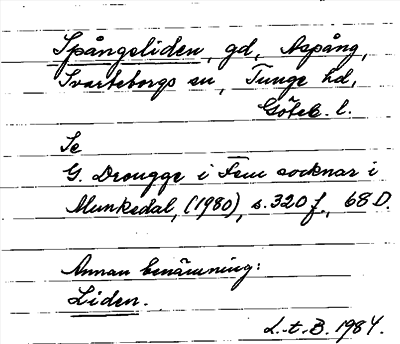 Spångsliden, gd, Aspång,
Svarteborgs sn, Tunge hd,
Göteb. l.
Se
G. Drougge i Fem socknar i
Munkedal, (1980), s. 320 f., 68 D.
Annan benämning:
Liden.
L.t.B. 1984.